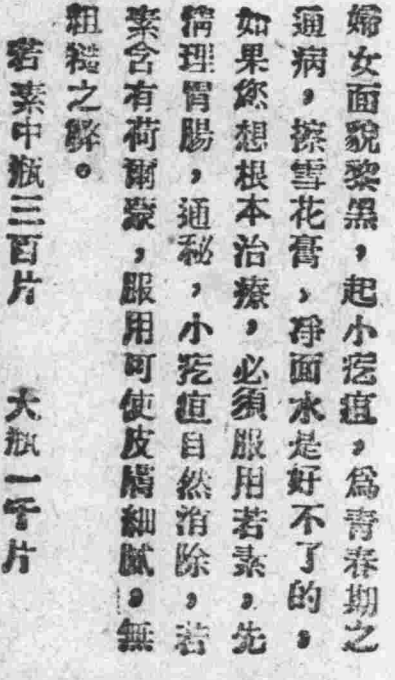 婦女面貌黎黑，起小疙疸，爲青春期之
通病，擦雪花膏、凈面水是好不了的，
如果您想根本治療，必須服用若素，先
清理胃腸，通秘，小疙疸自然消除，若
素含有荷爾蒙，服用可使皮膚細膩，無
粗糙之弊。
若素中瓶三百片　大瓶一千片